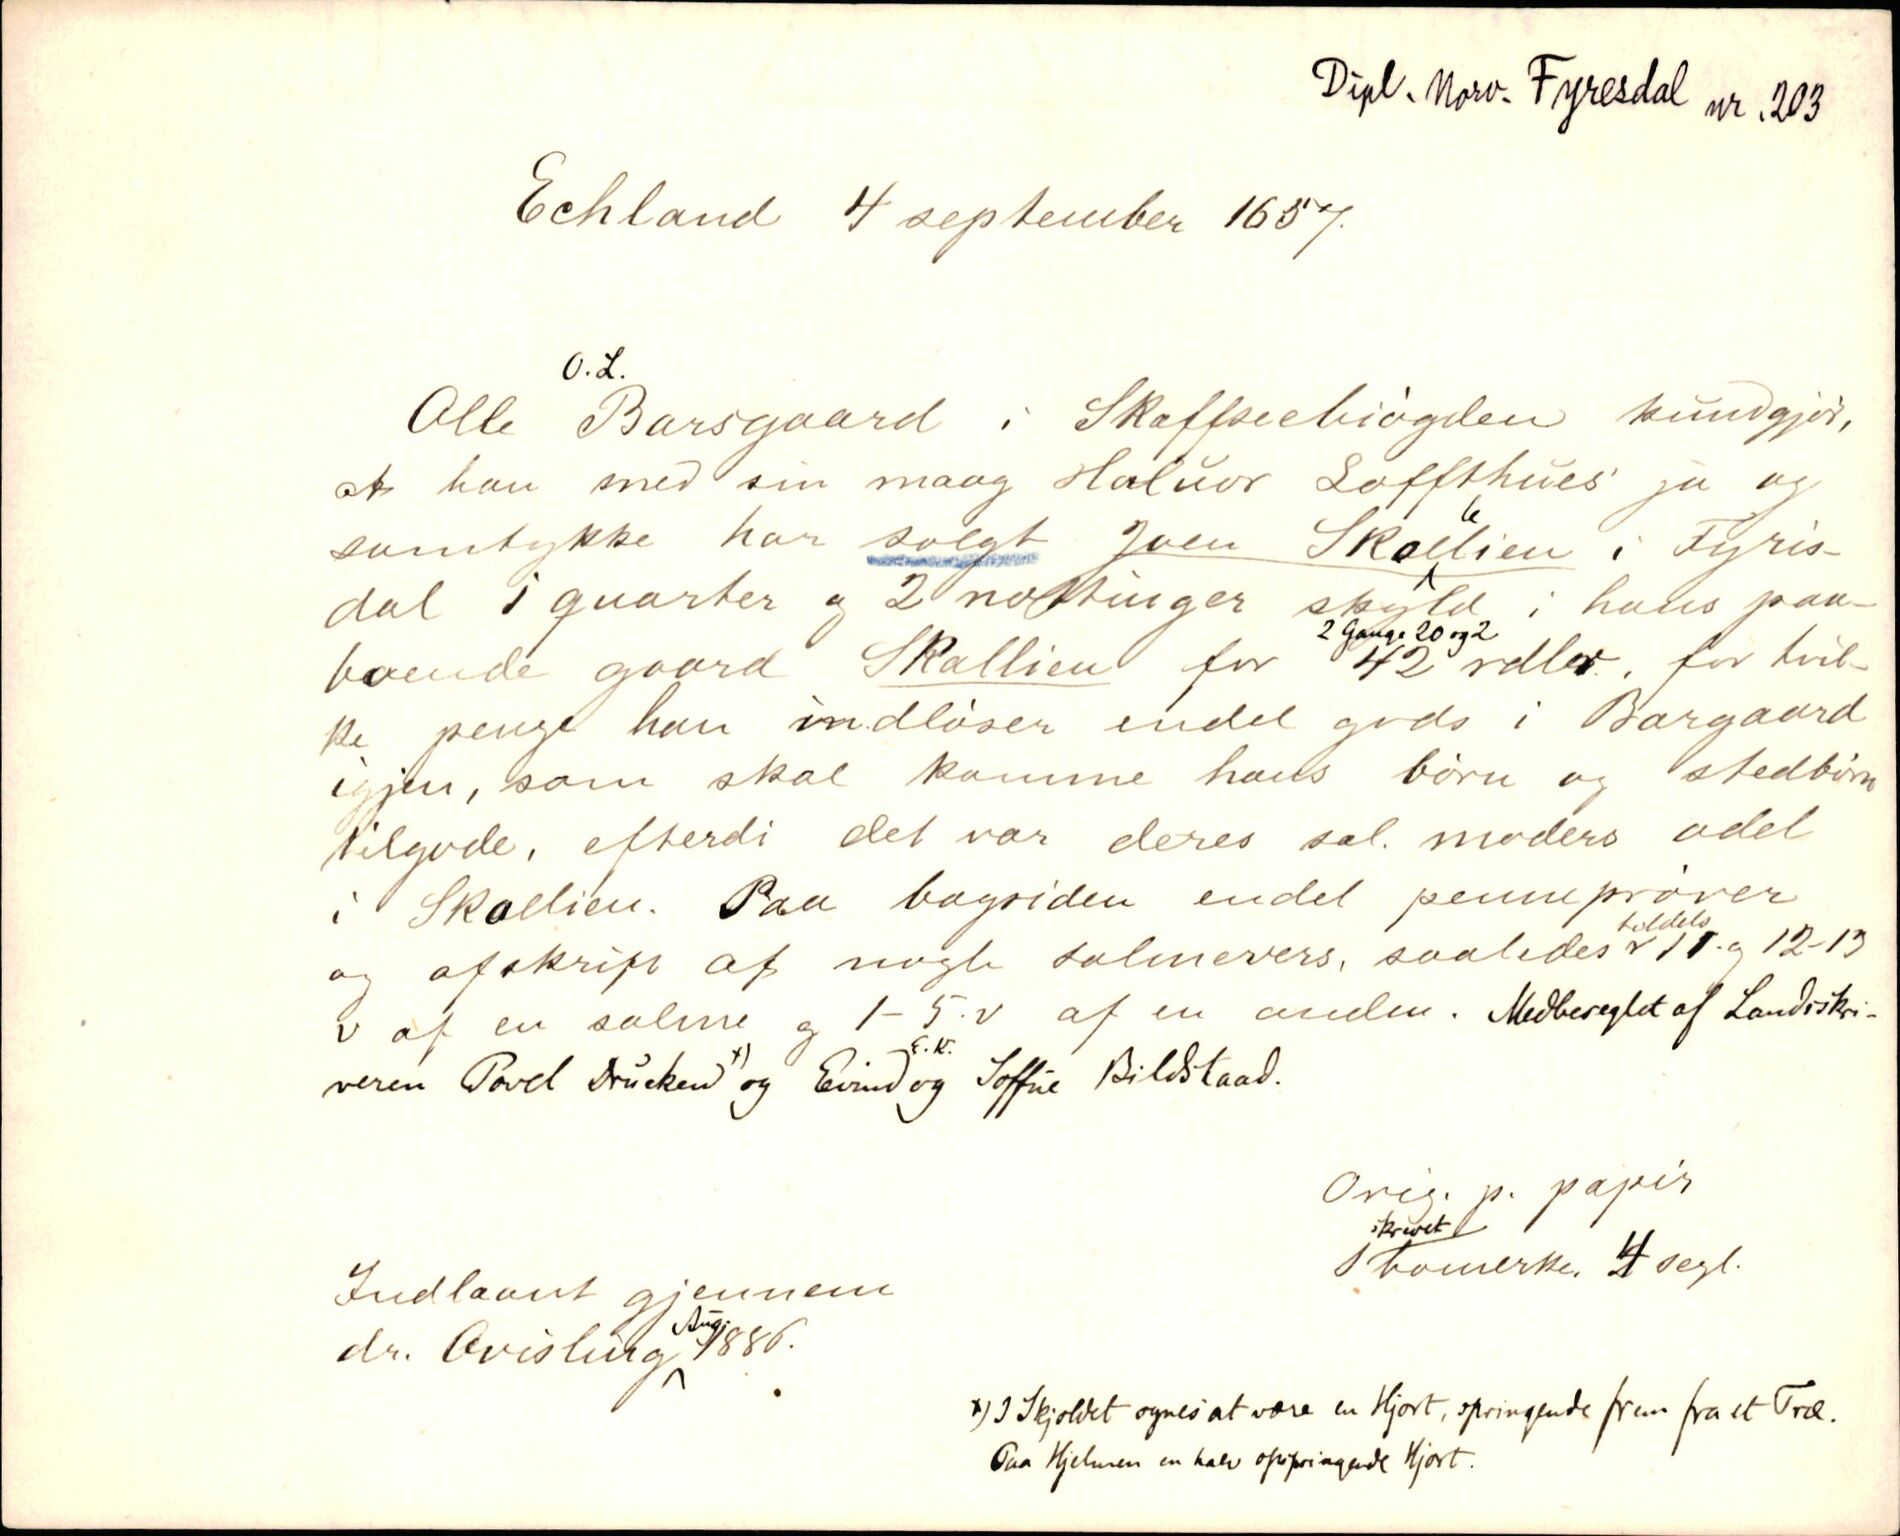 Dipl. Norv. Fyresdal nr. 203
Echland 4 september 1657.
O.L.
Olle Barsgaard i Skaffseebiøgden kundgjør,
at han med sin maag Haluor Loffthues' ja og
samtykke har solgt Joen Skallien i Fyris-
dal 1 quarter og 2 nottinger skyld i hans paa-
2 Gange 20 og 2
boende gaard Skallien for 42 rdler., for hvil-
ke penge han indløser endel gods i Bargaard
igjen, som skal komme hans børn og stedbørn
tilgode, efterdi det var deres sal. moders odel
i Skallien. Paa bagsiden endel penneprøver
tildels
og afskrift af nogle salmevers, saaledes v 11. og 12-13
v af en salme og 1-5. v af en anden. Medbeseglet af Landsskri-
E. K.
veren Povel Drucken x) og Eivind og Soffue Bildstaad.
Orig. p. papir
skrevet
1 bomerke. 4 segl.
Indlaant gjennem
Aug.
dr. Qvisling 1886.
x) I Skjoldet synes at være en Hjort, springende frem fra et Træ.
Paa Hjelmen en halv opspringende Hjort.